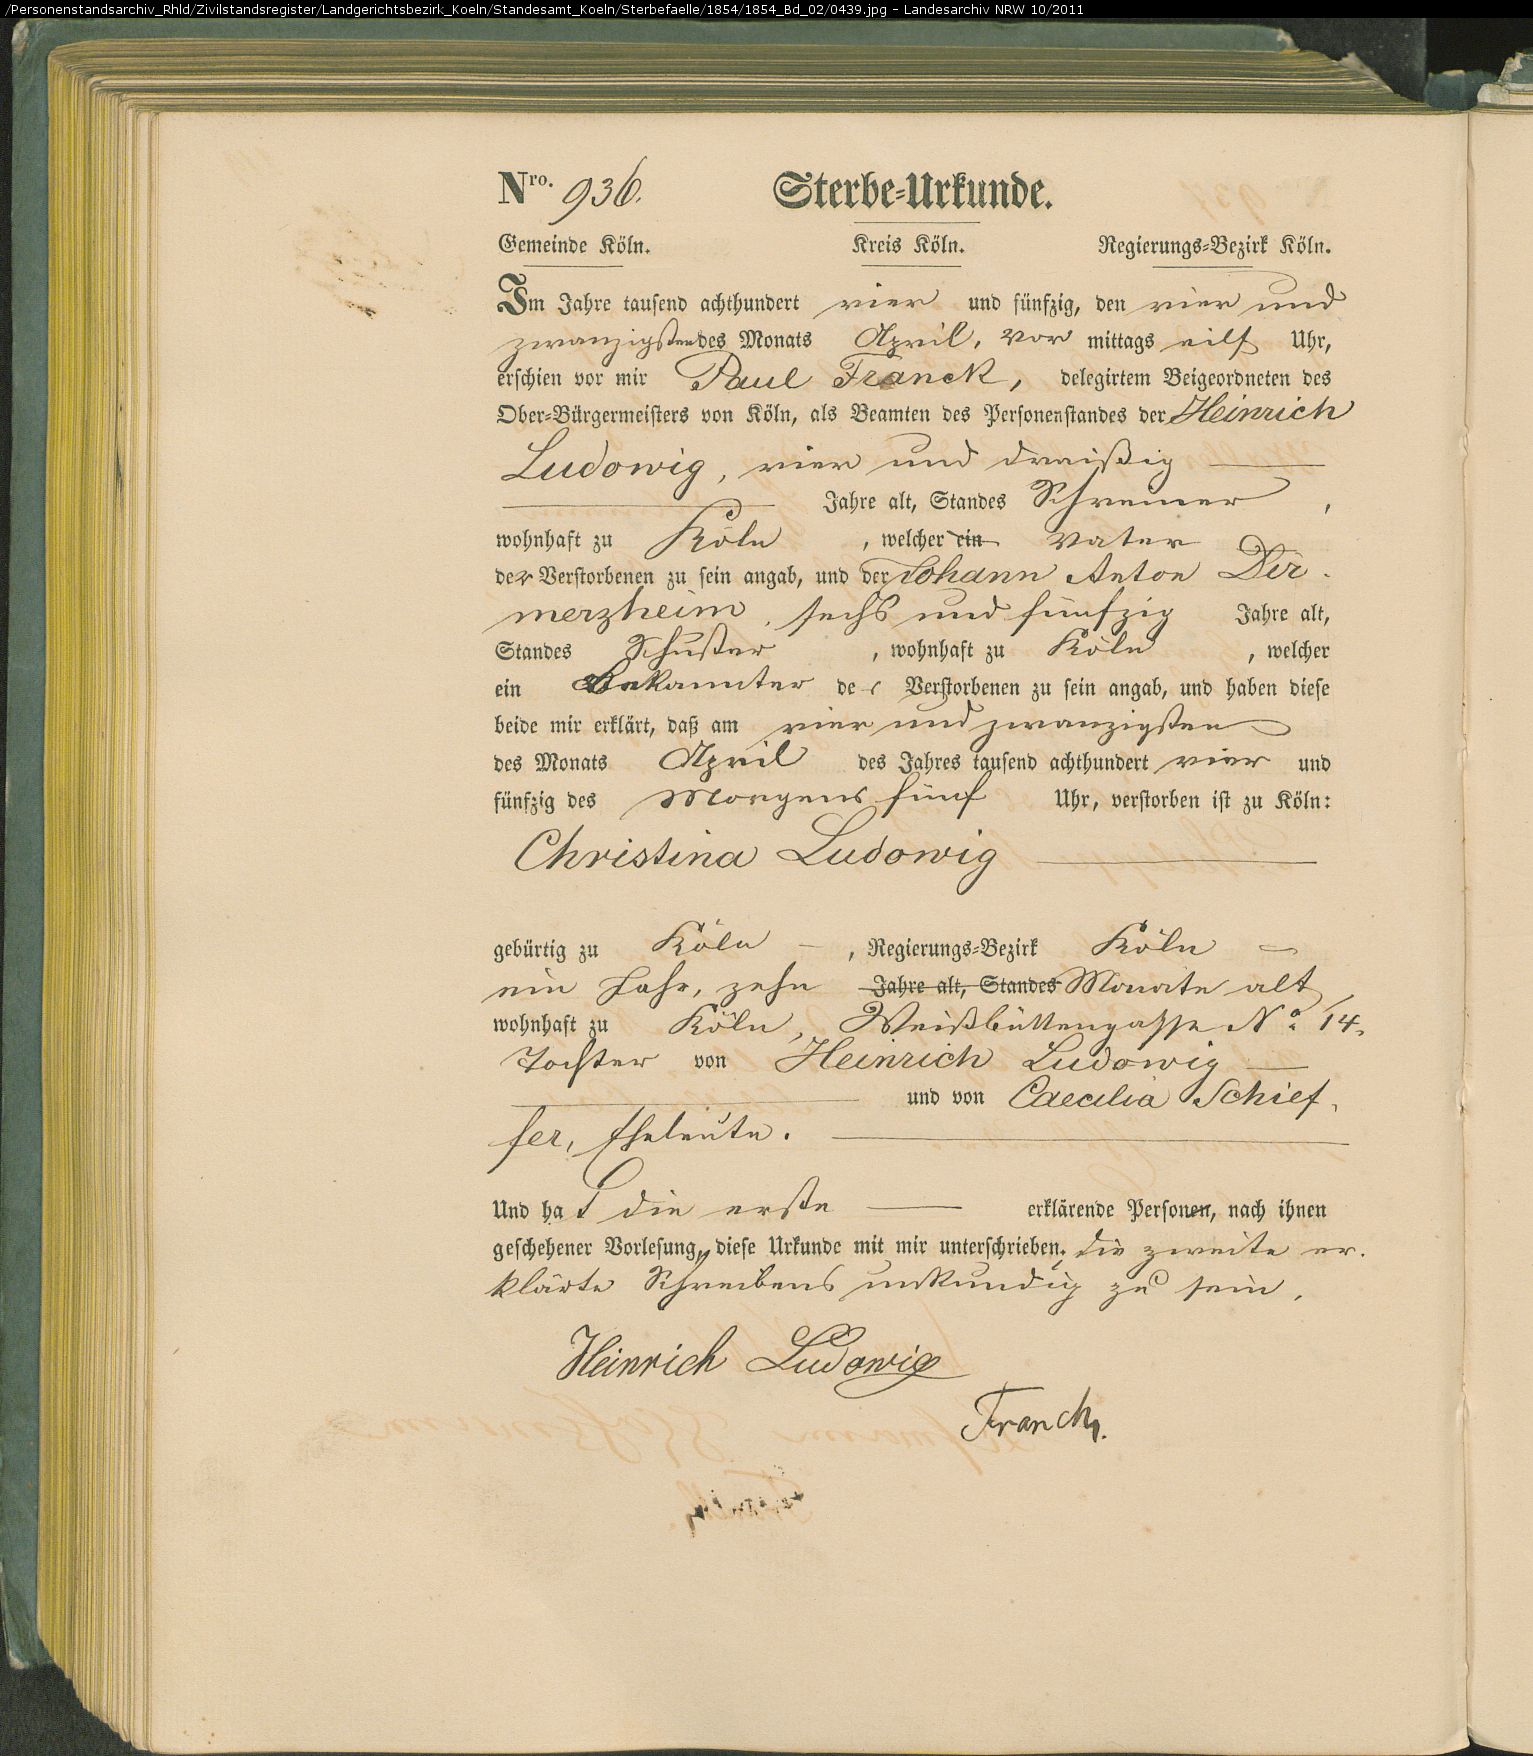 /Personenstandsarchiv_Rhld/Zivilstandsregister/Landgerichtsbezirk_Koeln/Standesamt_Koeln/Sterbefaelle/1854/1854_Bd_02/0439.jpg - Landesarchiv NRW 10/2011
Nro. 936. Sterbe-Urkunde.
Gemeinde Köln. Kreis Köln. Regierungs-Bezirk Köln.
Im Jahre tausend achthundert vier und fünfzig, den vier und
zwanzigsten des Monats April, vor mittags eilf Uhr,
erschien vor mir Paul Franck, delegirtem Beigeordneten des
Ober-Bürgermeisters von Köln, als Beamten des Personenstandes der Heinrich
Ludowig, vier und dreißig
Jahre alt, Standes Schreiner,
wohnhaft zu Köln, welcher ein Vater
der Verstorbenen zu sein angab, und der Johann Anton Dir-
merzheim, sechs und fünfzig Jahre alt,
Standes Schuster, wohnhaft zu Köln, welcher
ein Bekannter der Verstorbenen zu sein angab, und haben diese
beide mir erklärt, daß am vier und zwanzigsten
des Monats April des Jahres tausend achthundert vier und
fünfzig des Morgens fünf Uhr, verstorben ist zu Köln:
Christina Ludowig
gebürtig zu Köln, Regierungs-Bezirk Köln
ein Jahr, zehn Jahre alt, Standes Monate alt,
wohnhaft zu Köln, Weißbüttengasse No. 14.
Tochter von Heinrich Ludowig
und von Caecilia Schief-
fer, Eheleute.
Und hat die erste erklärende Personen, nach ihnen
geschehener Vorlesung, diese Urkunde mit mir unterschrieben, die zweite er-
klärte Schreibens unkundig zu sein.
Heinrich Ludowig
Franck.